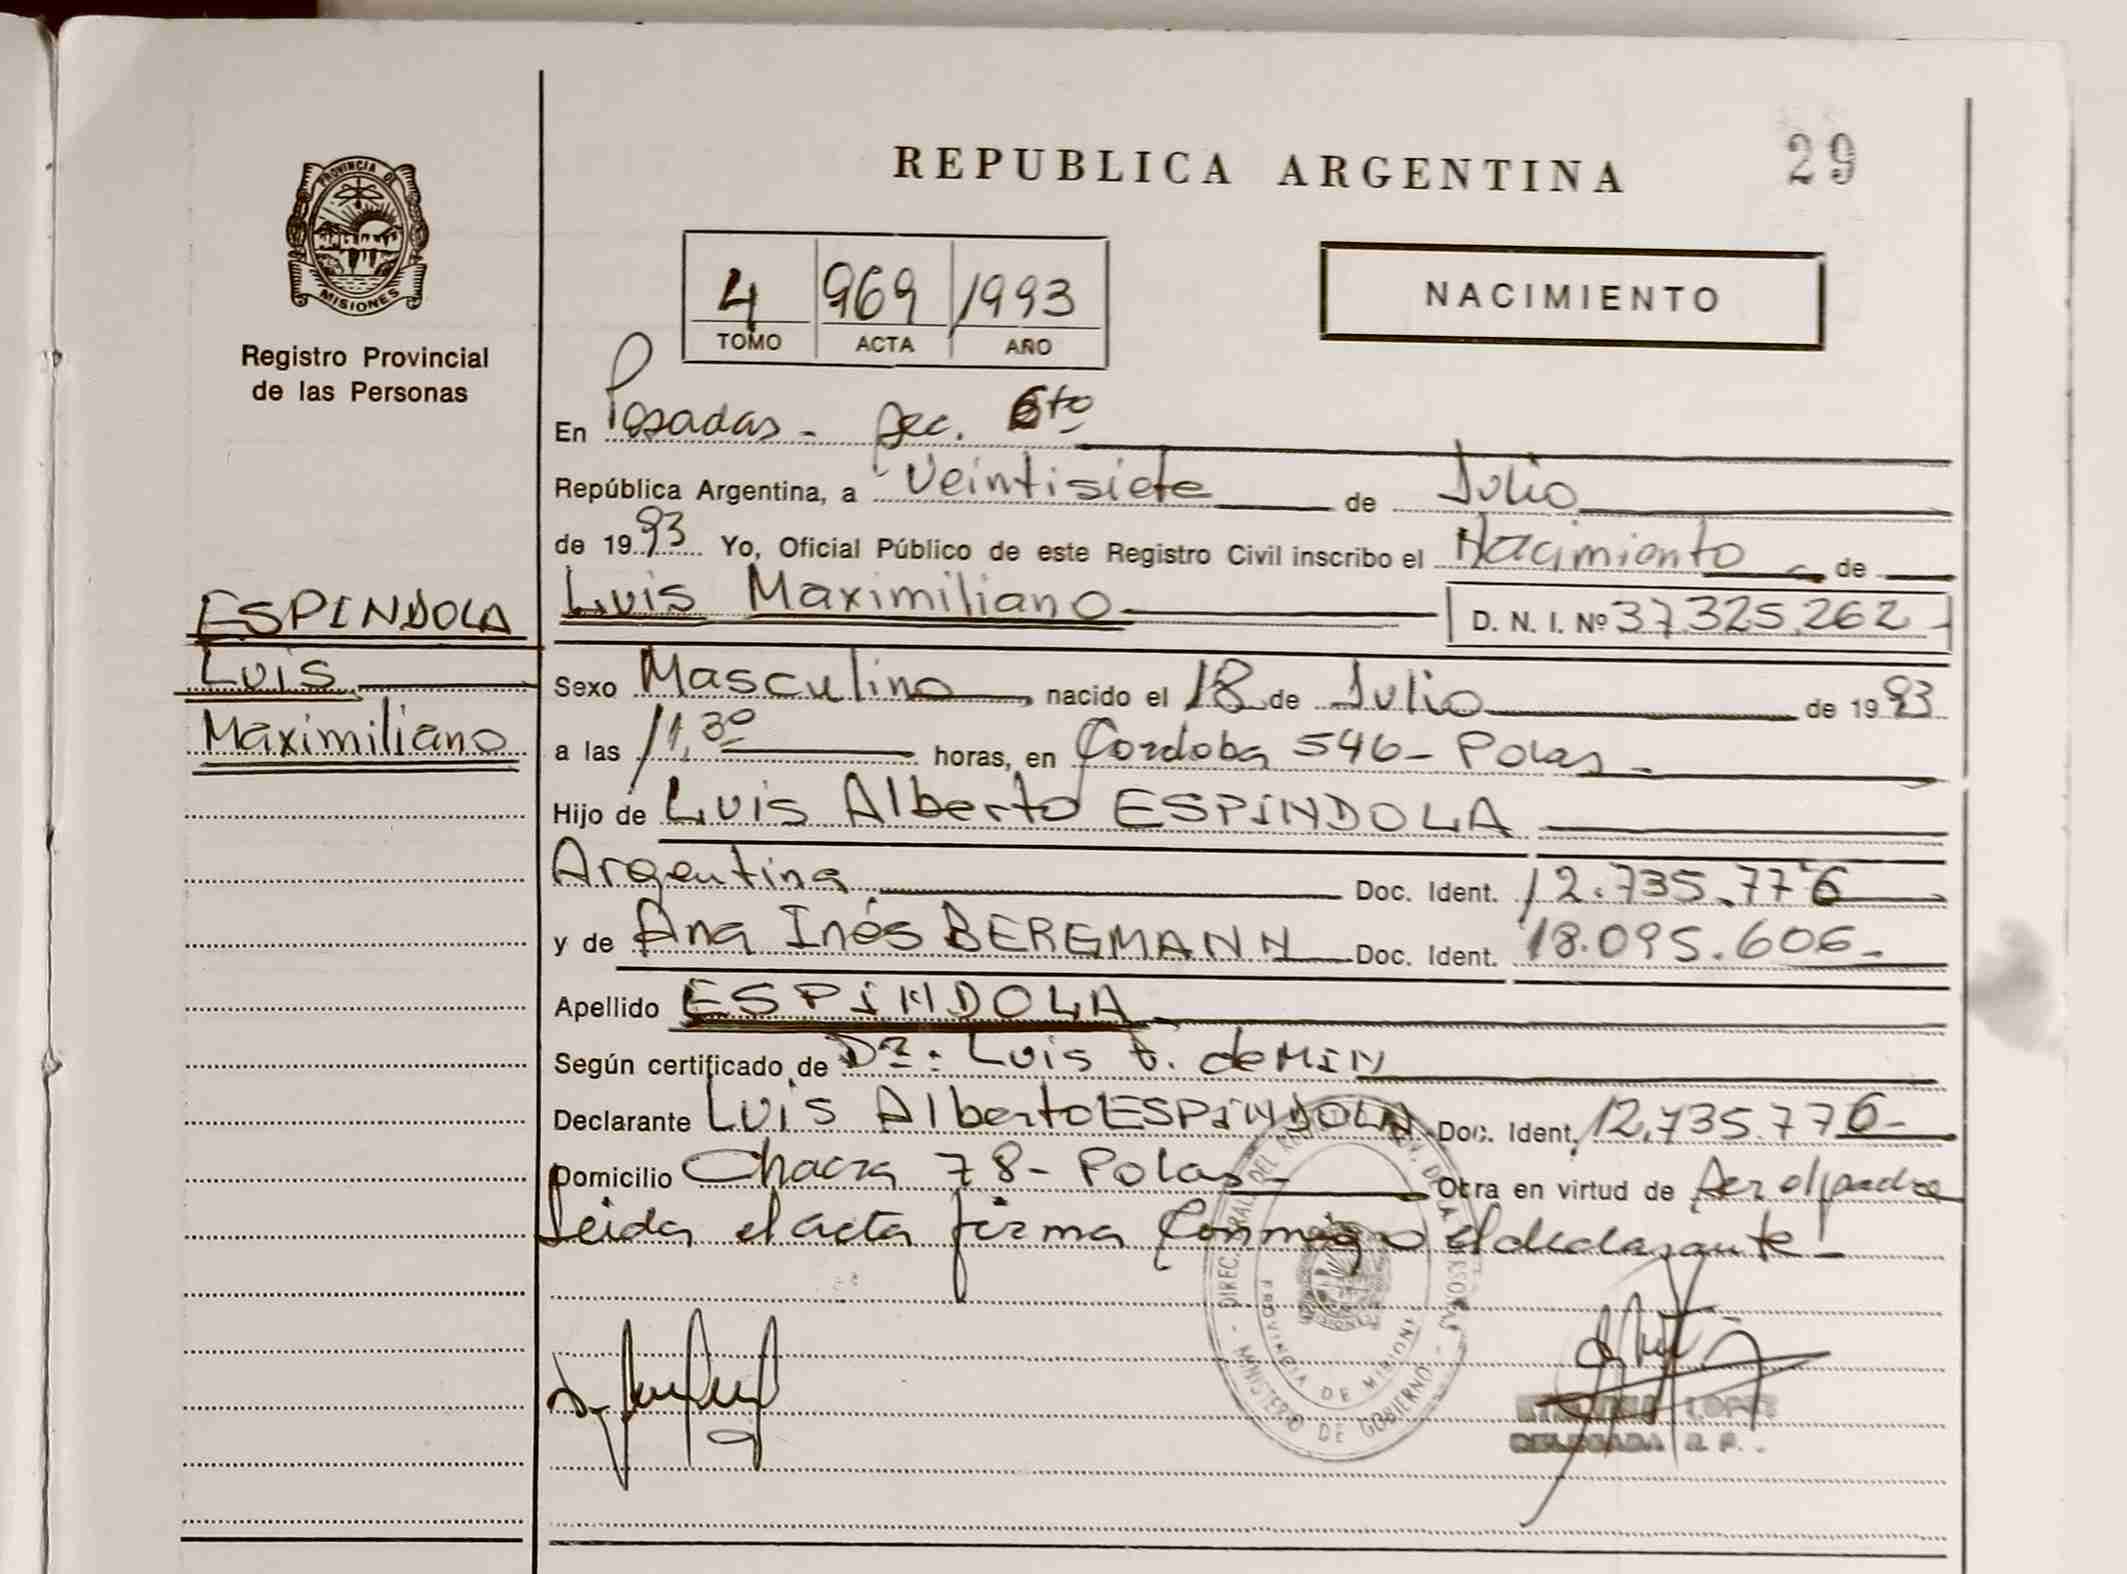 REPUBLICA ARGENTINA
29
PROVINCIA DE
MISIONES
Registro Provincial
de las Personas
4 969 1993
TOMO ACTA AÑO
NACIMIENTO
En Posadas - Sec. 6to
República Argentina, a Veintisiete de Julio
de 1993 Yo, Oficial Público de este Registro Civil inscribo el Nacimiento de
ESPINDOLA
Luis
Maximiliano
Luis Maximiliano D. N. I. Nº 37.325.262
Sexo Masculino nacido el 18 de Julio de 1993
a las 11,30 horas, en Cordoba 546 - Pdas -
Hijo de Luis Alberto ESPINDOLA
Argentina Doc. Ident. 12.735.776
y de Ana Inés BERGMANN Doc. Ident. 18.095.606-
Apellido ESPINDOLA
Según certificado de Dr: Luis deMIN
Declarante Luis Alberto ESPINDOLA Doc. Ident. 12.735.776-
Domicilio Chacra 78 - Pdas - Otra en virtud de Ser el padre
Leida el acta firma Conmigo el declarante -
MINISTERIO DE GOBIERNO
PROVINCIA DE MISIONES
LOPEZ
DELEGADA R. P.